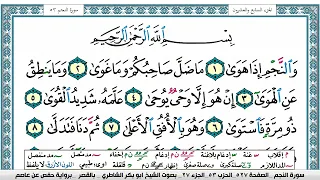 الجزء السابع والعشرون
سورة النجم ٥٣
بِسْمِ اللَّهِ الرَّحْمَٰنِ الرَّحِيمِ
وَالنَّجْمِ إِذَا هَوَىٰ ١ مَا ضَلَّ صَاحِبُكُمْ وَمَا غَوَىٰ ٢ وَمَا يَنطِقُ
عَنِ الْهَوَىٰ ٣ إِنْ هُوَ إِلَّا وَحْيٌ يُوحَىٰ ٤ عَلَّمَهُ شَدِيدُ الْقُوَىٰ ٥
ذُو مِرَّةٍ فَاسْتَوَىٰ ٦ وَهُوَ بِالْأُفُقِ الْأَعْلَىٰ ٧ ثُمَّ دَنَا فَتَدَلَّىٰ ٨
سورة النجم الصفحة ٥٢٧ الحزب ٥٣ الجزء ٢٧ بصوت الشيخ أبو بكر الشاطري بالقصر برواية حفص عن عاصم